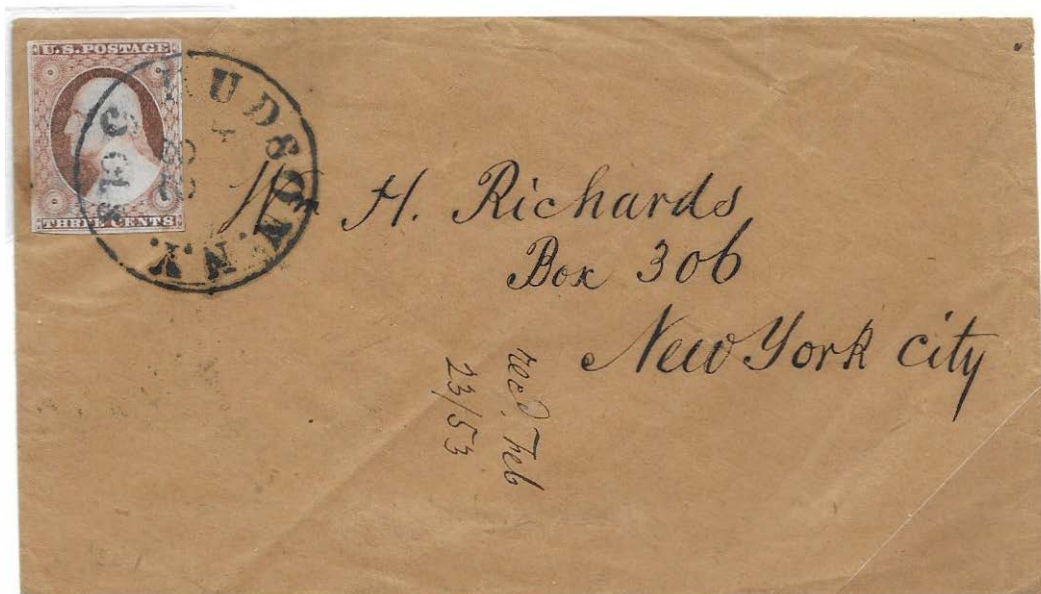 U.S.POSTAGE
THREE CENTS
HUDSON. N.Y.
3 cts
H. Richards
Box 306
New York city
recd. Feb
23/53